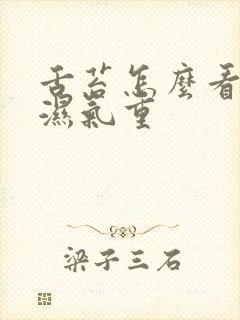 舌苔怎麼看
濕氣重
梁子三石